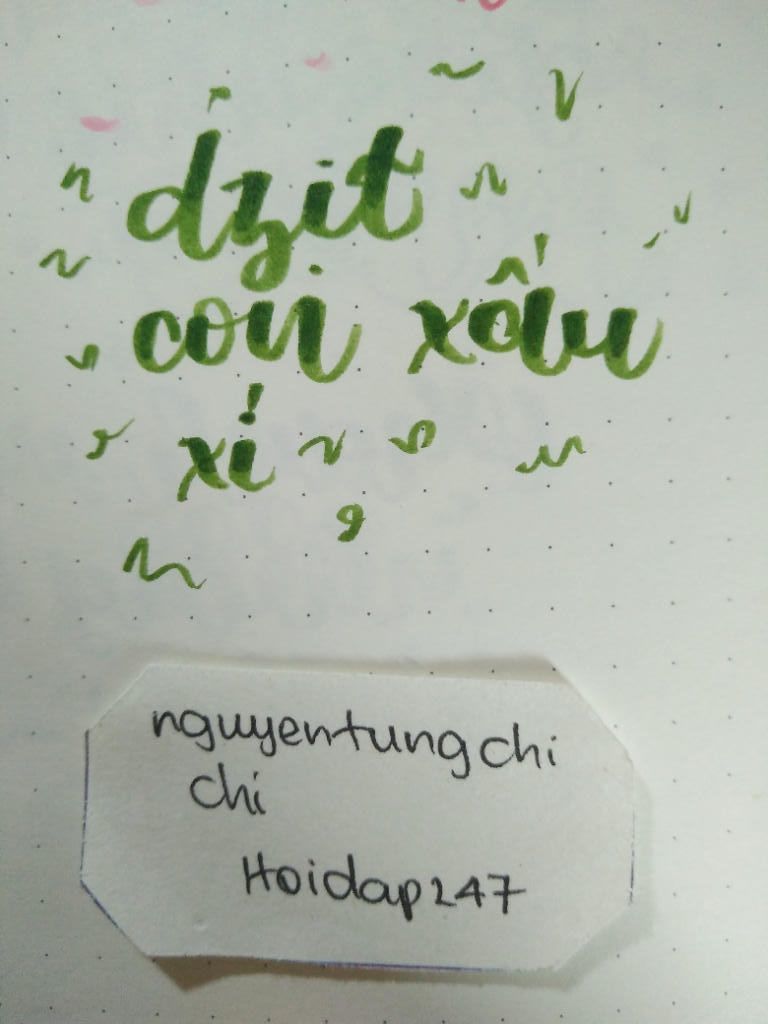 dzịt
con xấu
xí
nguyentungchi
chi
Hoidap247